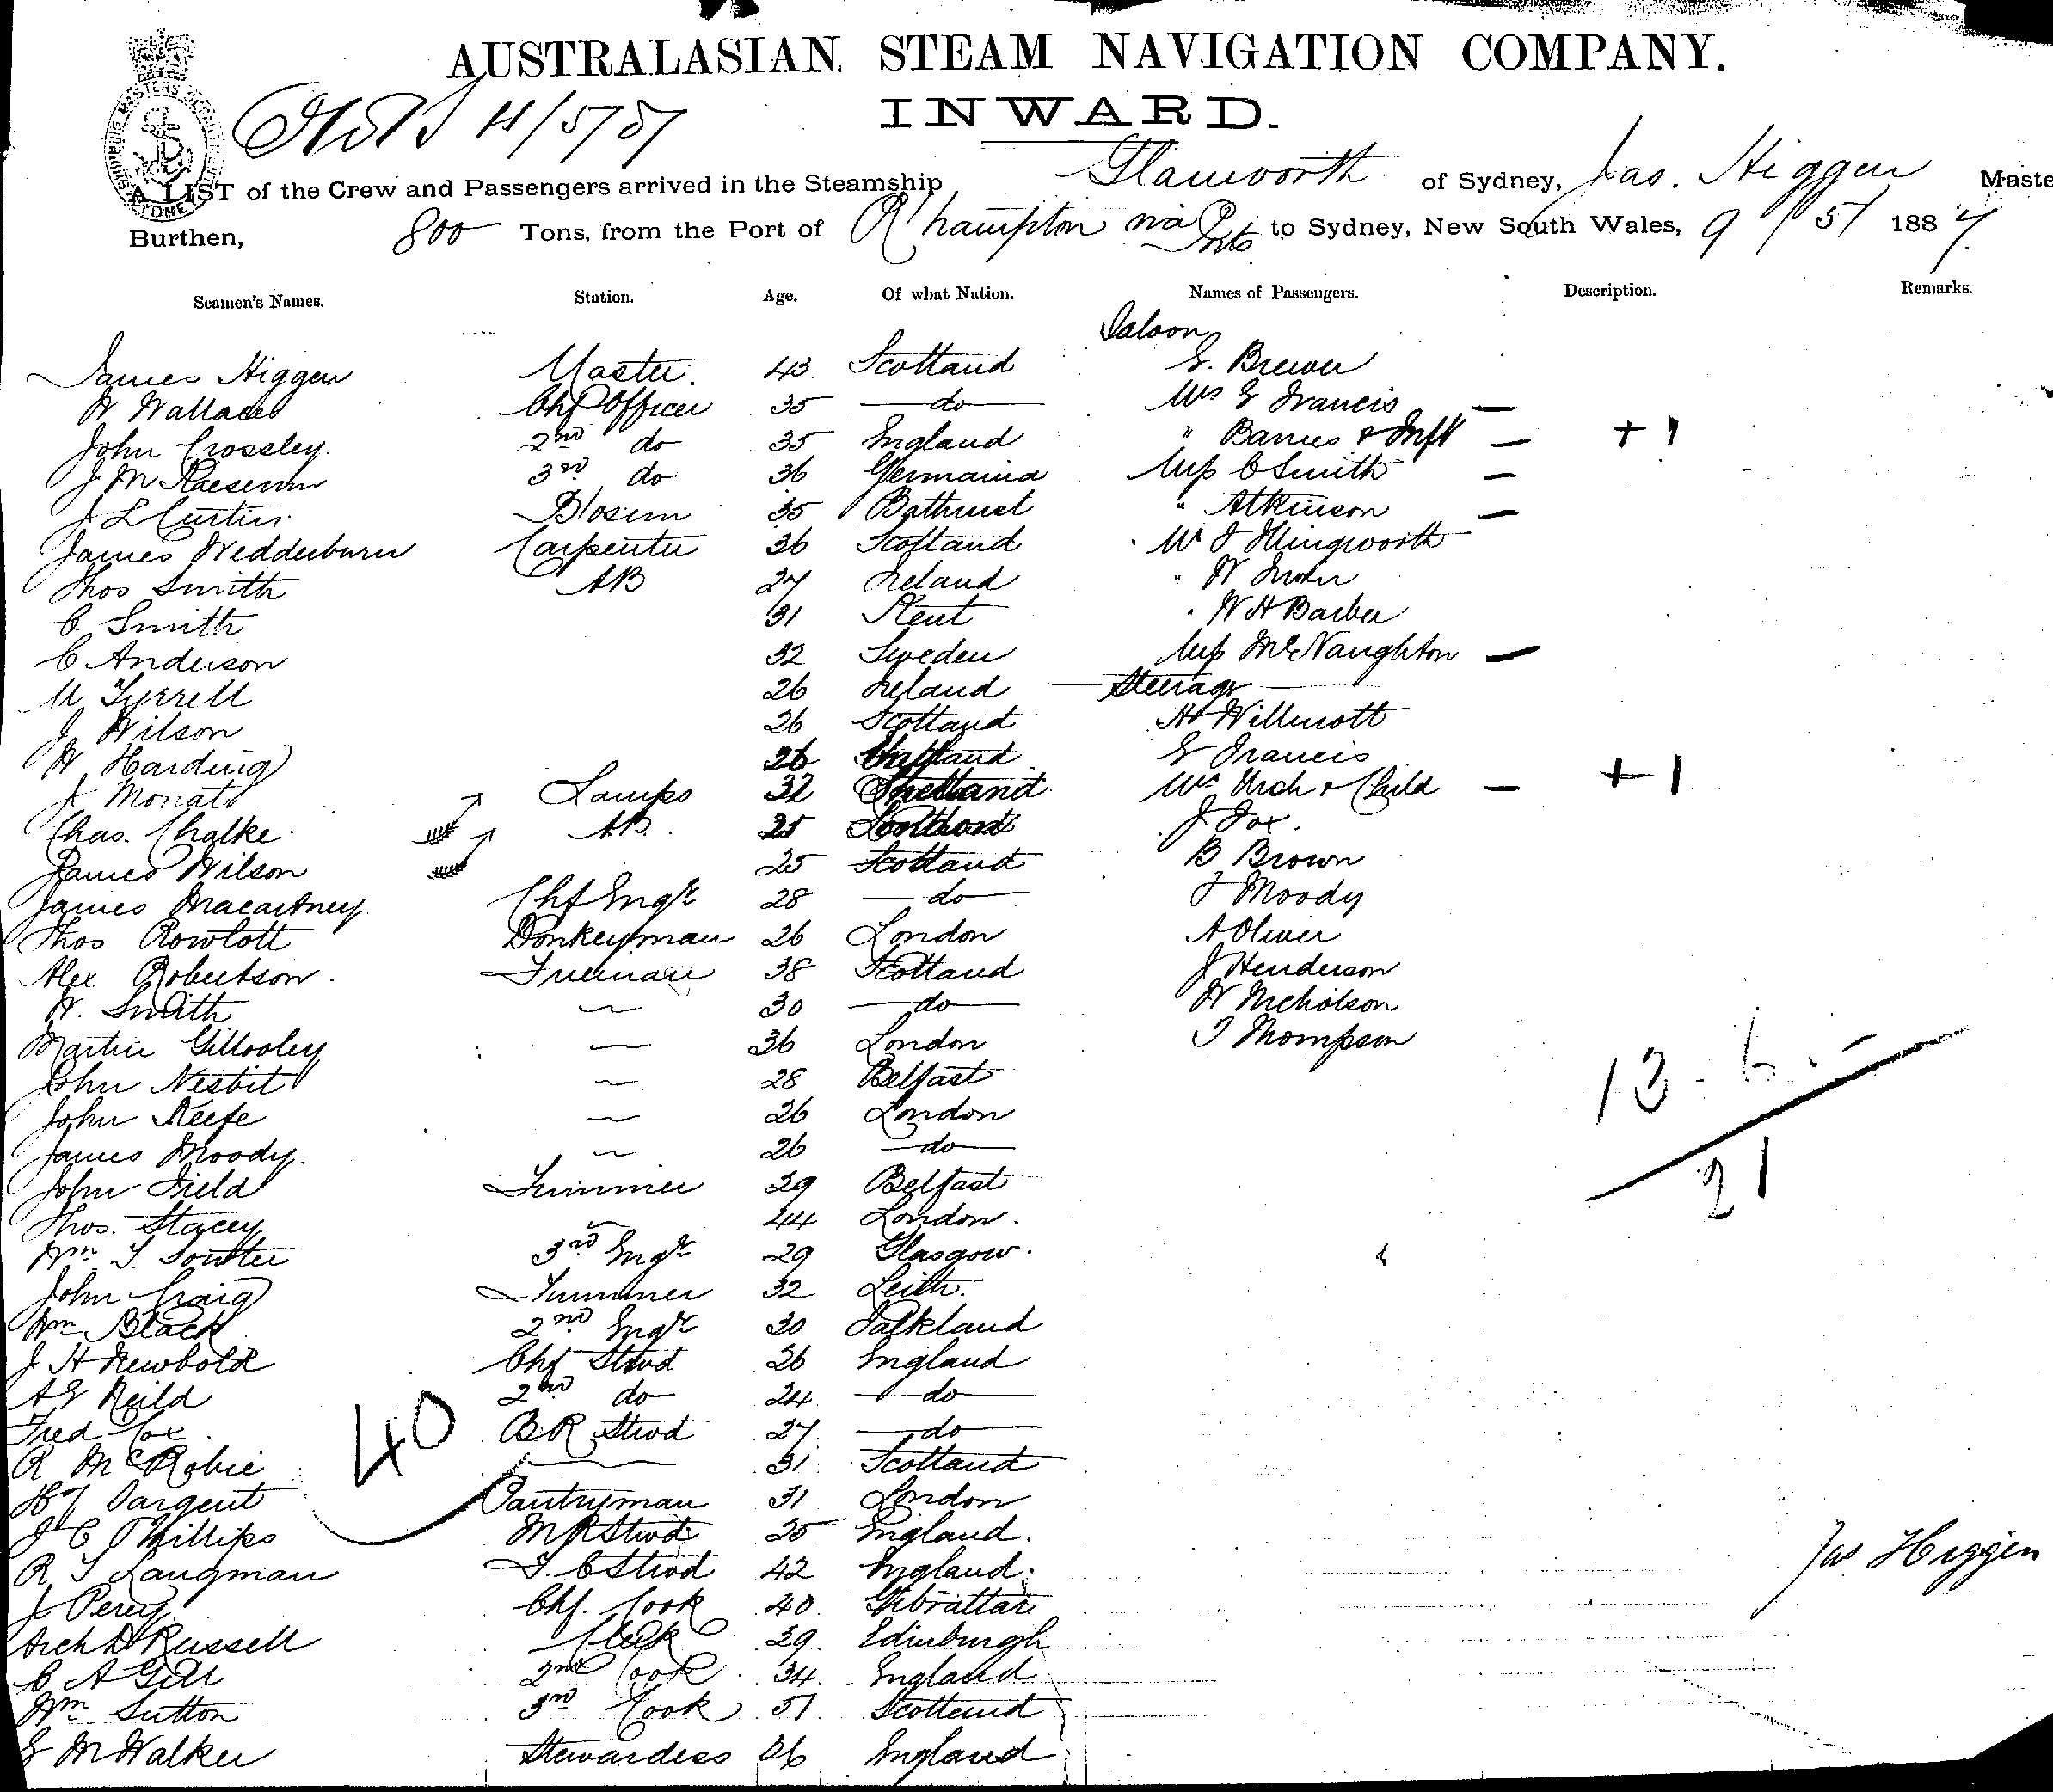 AUSTRALASIAN STEAM NAVIGATION COMPANY.
INWARD.
SHIPPING MASTERS OFFICE SYDNEY
A LIST of the Crew and Passengers arrived in the Steamship Glanworth of Sydney, Jas. Higgen Maste
Burthen, 800 Tons, from the Port of R'hampton via Pts to Sydney, New South Wales, 9/5/ 1887
Seamen's Names. Station. Age. Of what Nation. Names of Passengers. Description. Remarks.
Saloon
James Higgen Master. 43 Scotland E. Brewer
W Wallace Chf Officer 35 do Mrs E Francis —
John Crossley. 2nd do 35 England " Barnes & Inft — + 1
J M 3rd do 36 Germania Miss C Smith —
J L Curtin Blosum 35 Bathurst " Atkinson —
James Wedderburn Carpenter 36 Scotland Mr J Illingworth
Thos Smith AB 27 Ireland " W
C Smith 31 Kent " W H Barber
C Anderson 32 Sweden Miss McNaughton —
M Tyrrell 26 Ireland Steerage
J Wilson 26 Scotland H Willmott
W Harding 26 E Francis
J Monat Lamps 32 Shetland Mrs Arch & Child — + 1
Chas. Chalke AB. 25 J Fox.
James Wilson 25 Scotland B Brown
James Macartney Chf Engr 28 do J Moody
Thos Rowlott Donkeyman 26 London A Oliver
Alex Robertson Fireman 38 Scotland J Henderson
W. Smith 30 do W Nicholson
Martin Gillooley 36 London T Thompson
John Nesbit 28 Belfast
John Keefe 26 London
James Moody. 26 do
John Field Trimmer 29 Belfast
Thos. Stacey 44 London.
Wm T. Souter 3rd Engr 29 Glasgow.
John Craig Trimmer 32 Leith.
Wm Black 2nd Engr 30 Falkland
J H Newbold Chf Stwd 26 England
A E Neild 2nd do 24 do
Fred Cox B R Stwd 27 do
R McRobie 31 Scotland
40
Hy Sargent Pantryman 31 London
J C Phillips M R Stwd 25 England.
R T Langman F. C Stwd 42 England.
J Percy Chf. Cook 40 Gibraltar
Arch D Russell Clerk 29 Edinburgh
C A Gill 2nd Cook 34 England
Wm Sutton 3rd Cook 51 Scotland
E M Walker Stewardess 26 England
13 . 6 . -
21
Jas Higgen